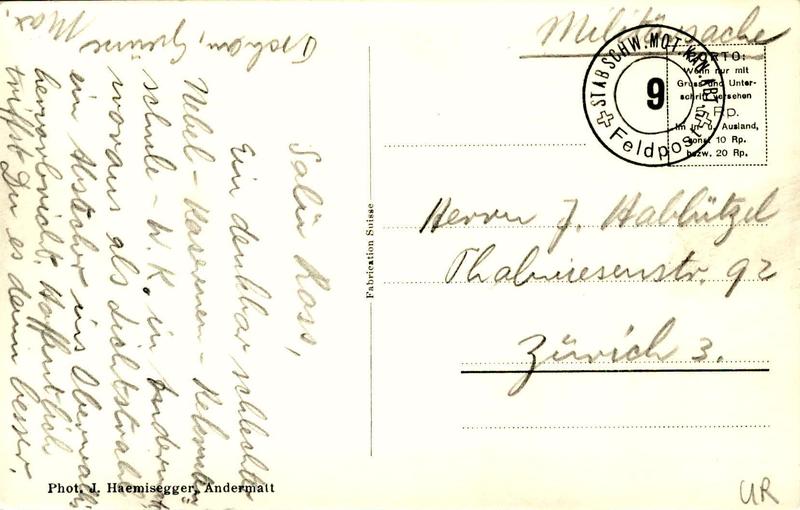 Militärsache
STAB SCHW. MOT. KAN. ABT. 9
Feldpost
PORTO:
Wenn nur mit
Gruss und Unter-
schrift versehen
5 Rp.
Im In- u. Ausland,
sonst 10 Rp.
bezw. 20 Rp.
Herrn J. Hablützel
Thalwiesenstr. 92
Zürich 3.
Fabrication Suisse
Salü Ross,
Ein denkbar schlechter
Nebel - Kasernen - Rekruten
schule - W.K. in Andermatt
woraus als Lichtstrahl
ein Abstecher ins Oberwallis
hervorbricht. Hoffentlich
triffst Du es dann besser.
Max.
Phot. J. Haemisegger, Andermatt
UR